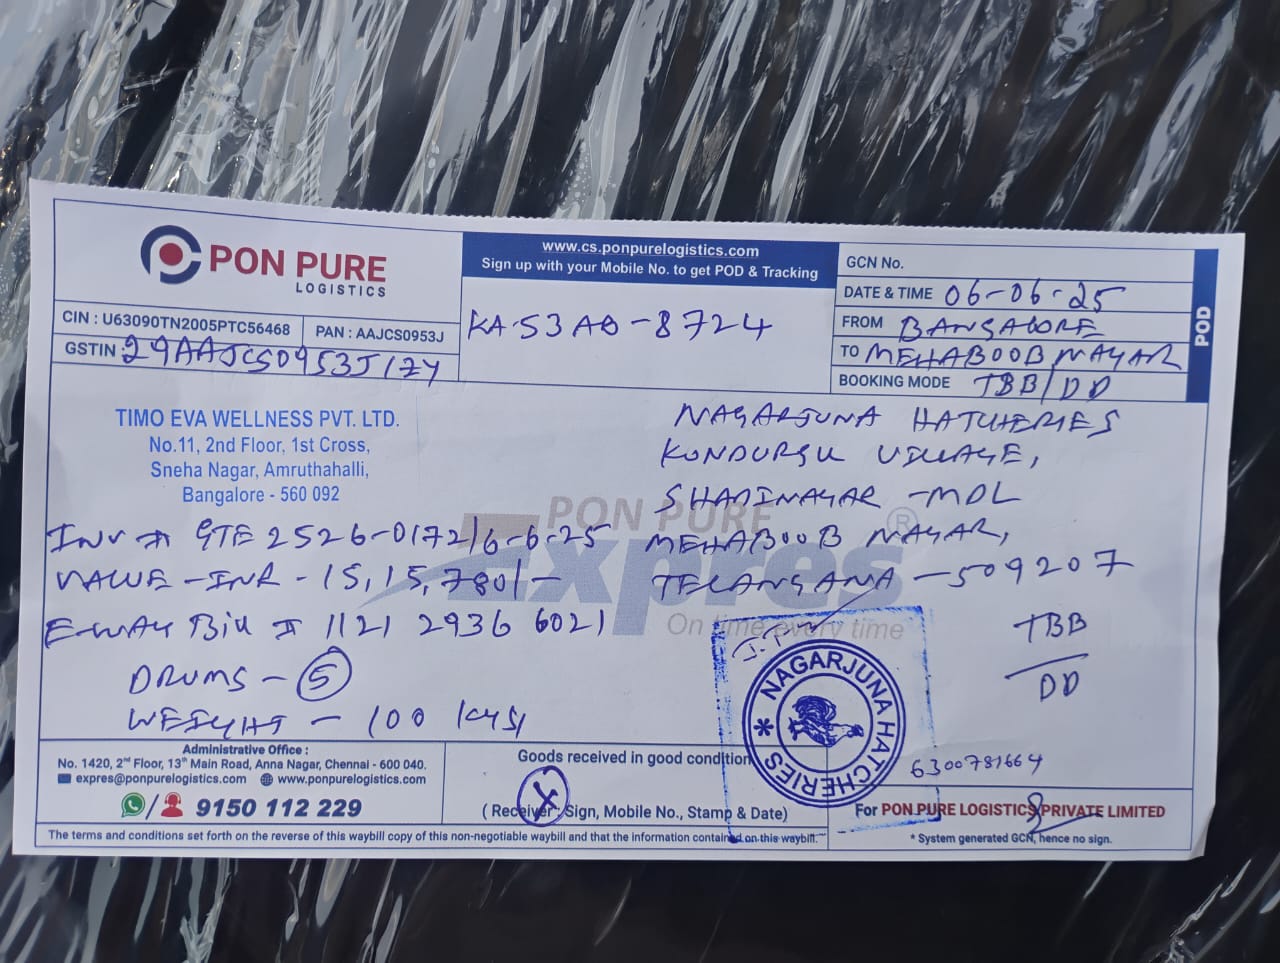 PON PURE
LOGISTICS
CIN : U63090TN2005PTC56468
PAN : AAJCS0953J
GSTIN 29AAJCS0953J1ZY
www.cs.ponpurelogistics.com
Sign up with your Mobile No. to get POD & Tracking
KA-53AB-8724
GCN No.
DATE & TIME 06-06-25
FROM BANGALORE
TO MEHABOOBNAGAR
BOOKING MODE TBB/DD
POD
TIMO EVA WELLNESS PVT. LTD.
No.11, 2nd Floor, 1st Cross,
Sneha Nagar, Amruthahalli,
Bangalore - 560 092
Inv # GTE 2526-0172/6-6-25
VALUE - INR - 15,15,780/-
E-way Bill # 1121 2936 6021
DRUMS - 5
WEIGHT - 100 KGS/
NAGARJUNA HATCHERIES
KONDURGU VILLAGE,
SHADINAGAR -MDL
MEHABOOB NAGAR,
TELANGANA - 509207
TBB
DD
PON PURE
Expres ®
On time every time
NAGARJUNA HATCHERIES *
6300781664
Administrative Office :
No. 1420, 2nd Floor, 13th Main Road, Anna Nagar, Chennai - 600 040.
expres@ponpurelogistics.com www.ponpurelogistics.com
/ 9150 112 229
Goods received in good condition
X
( Receiver : Sign, Mobile No., Stamp & Date)
For PON PURE LOGISTICS PRIVATE LIMITED
* System generated GCN, hence no sign.
The terms and conditions set forth on the reverse of this waybill copy of this non-negotiable waybill and that the information contained on this waybill.